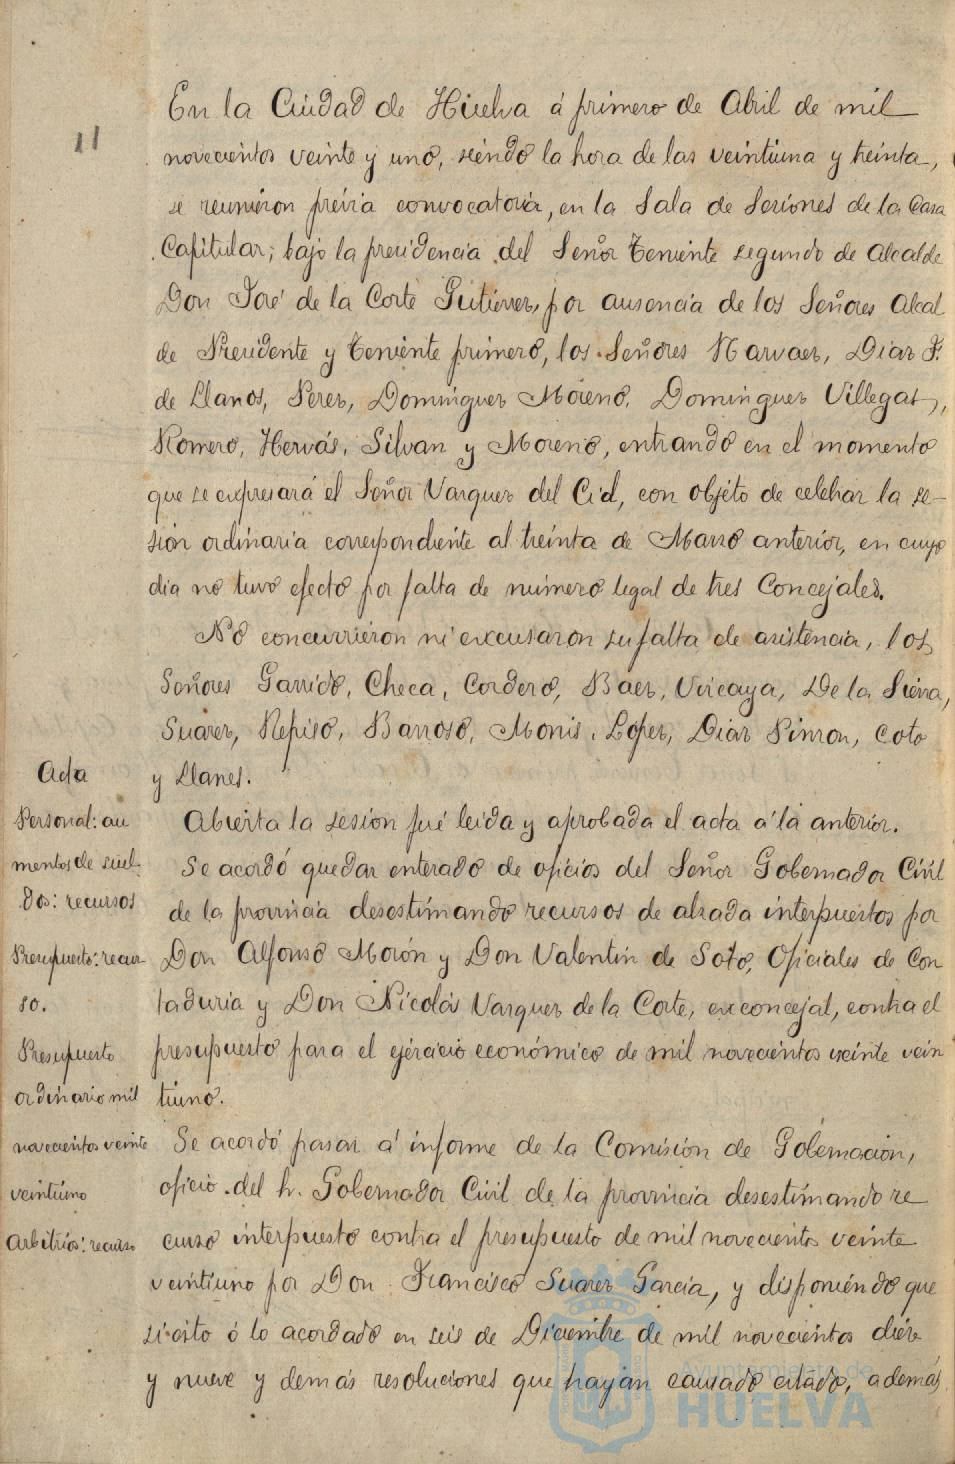 11
En la Ciudad de Huelva á primero de Abril de mil
novecientos veinte y uno, siendo la hora de las veintiuna y treinta,
se reunieron prévia convocatoria, en la Sala de Sesiones de la Casa
Capitular; bajo la presidencia del Señor Teniente segundo de Alcalde
Don José de la Corte Gutiérrez, por ausencia de los Señores Alcal
de Presidente y Teniente primero, los Señores Narvaez, Diaz F.
de Llanos, Perez, Domínguez Moreno, Dominguez Villegas,
Romero, Hervás, Silvan y Moreno, entrando en el momento
que se expresará el Señor Vazquez del Cid, con objeto de celebrar la se-
sión ordinaria correspondiente al treinta de Marzo anterior, en cuyo
dia no tuvo efecto por falta de número legal de tres Concejales.
No concurrieron ni excusaron su falta de asistencia, los
Señores Garrido, Checa, Cordero, Baez, Vizcaya, De la Sierra,
Suarez, Repiso, Barroso, Monis, Lopez, Diaz Pinzon, Coto
y Llanes.
Acta
Abierta la sesión fué leida y aprobada el acta á la anterior.
Personal: au
mentos de suel-
dos: recursos
Se acordó quedar enterado de oficios del Señor Gobernador Civil
de la provincia desestimando recursos de alzada interpuestos por
Don Alfonso Morón y Don Valentín de Soto, Oficiales de Con
taduria y Don Nicolás Vazquez de la Corte, exconcejal, contra el
presupuesto para el ejercicio económico de mil novecientos veinte vein
tiuno.
Presupuesto: recur-
so.
Presupuesto
ordinario mil
novecientos veinte
veintiuno
Arbitrios: recurso
Se acordó pasar á informe de la Comisión de Gobernación,
oficio del h. Gobernador Civil de la provincia desestimando re
curso interpuesto contra el presupuesto de mil novecientos veinte
veintiuno por Don Francisco Suarez García, y disponiendo que
si esto ó lo acordado en seis de Diciembre de mil novecientos diez
y nueve y demás resoluciones que hayan causado estado, además
Ayuntamiento de
HUELVA